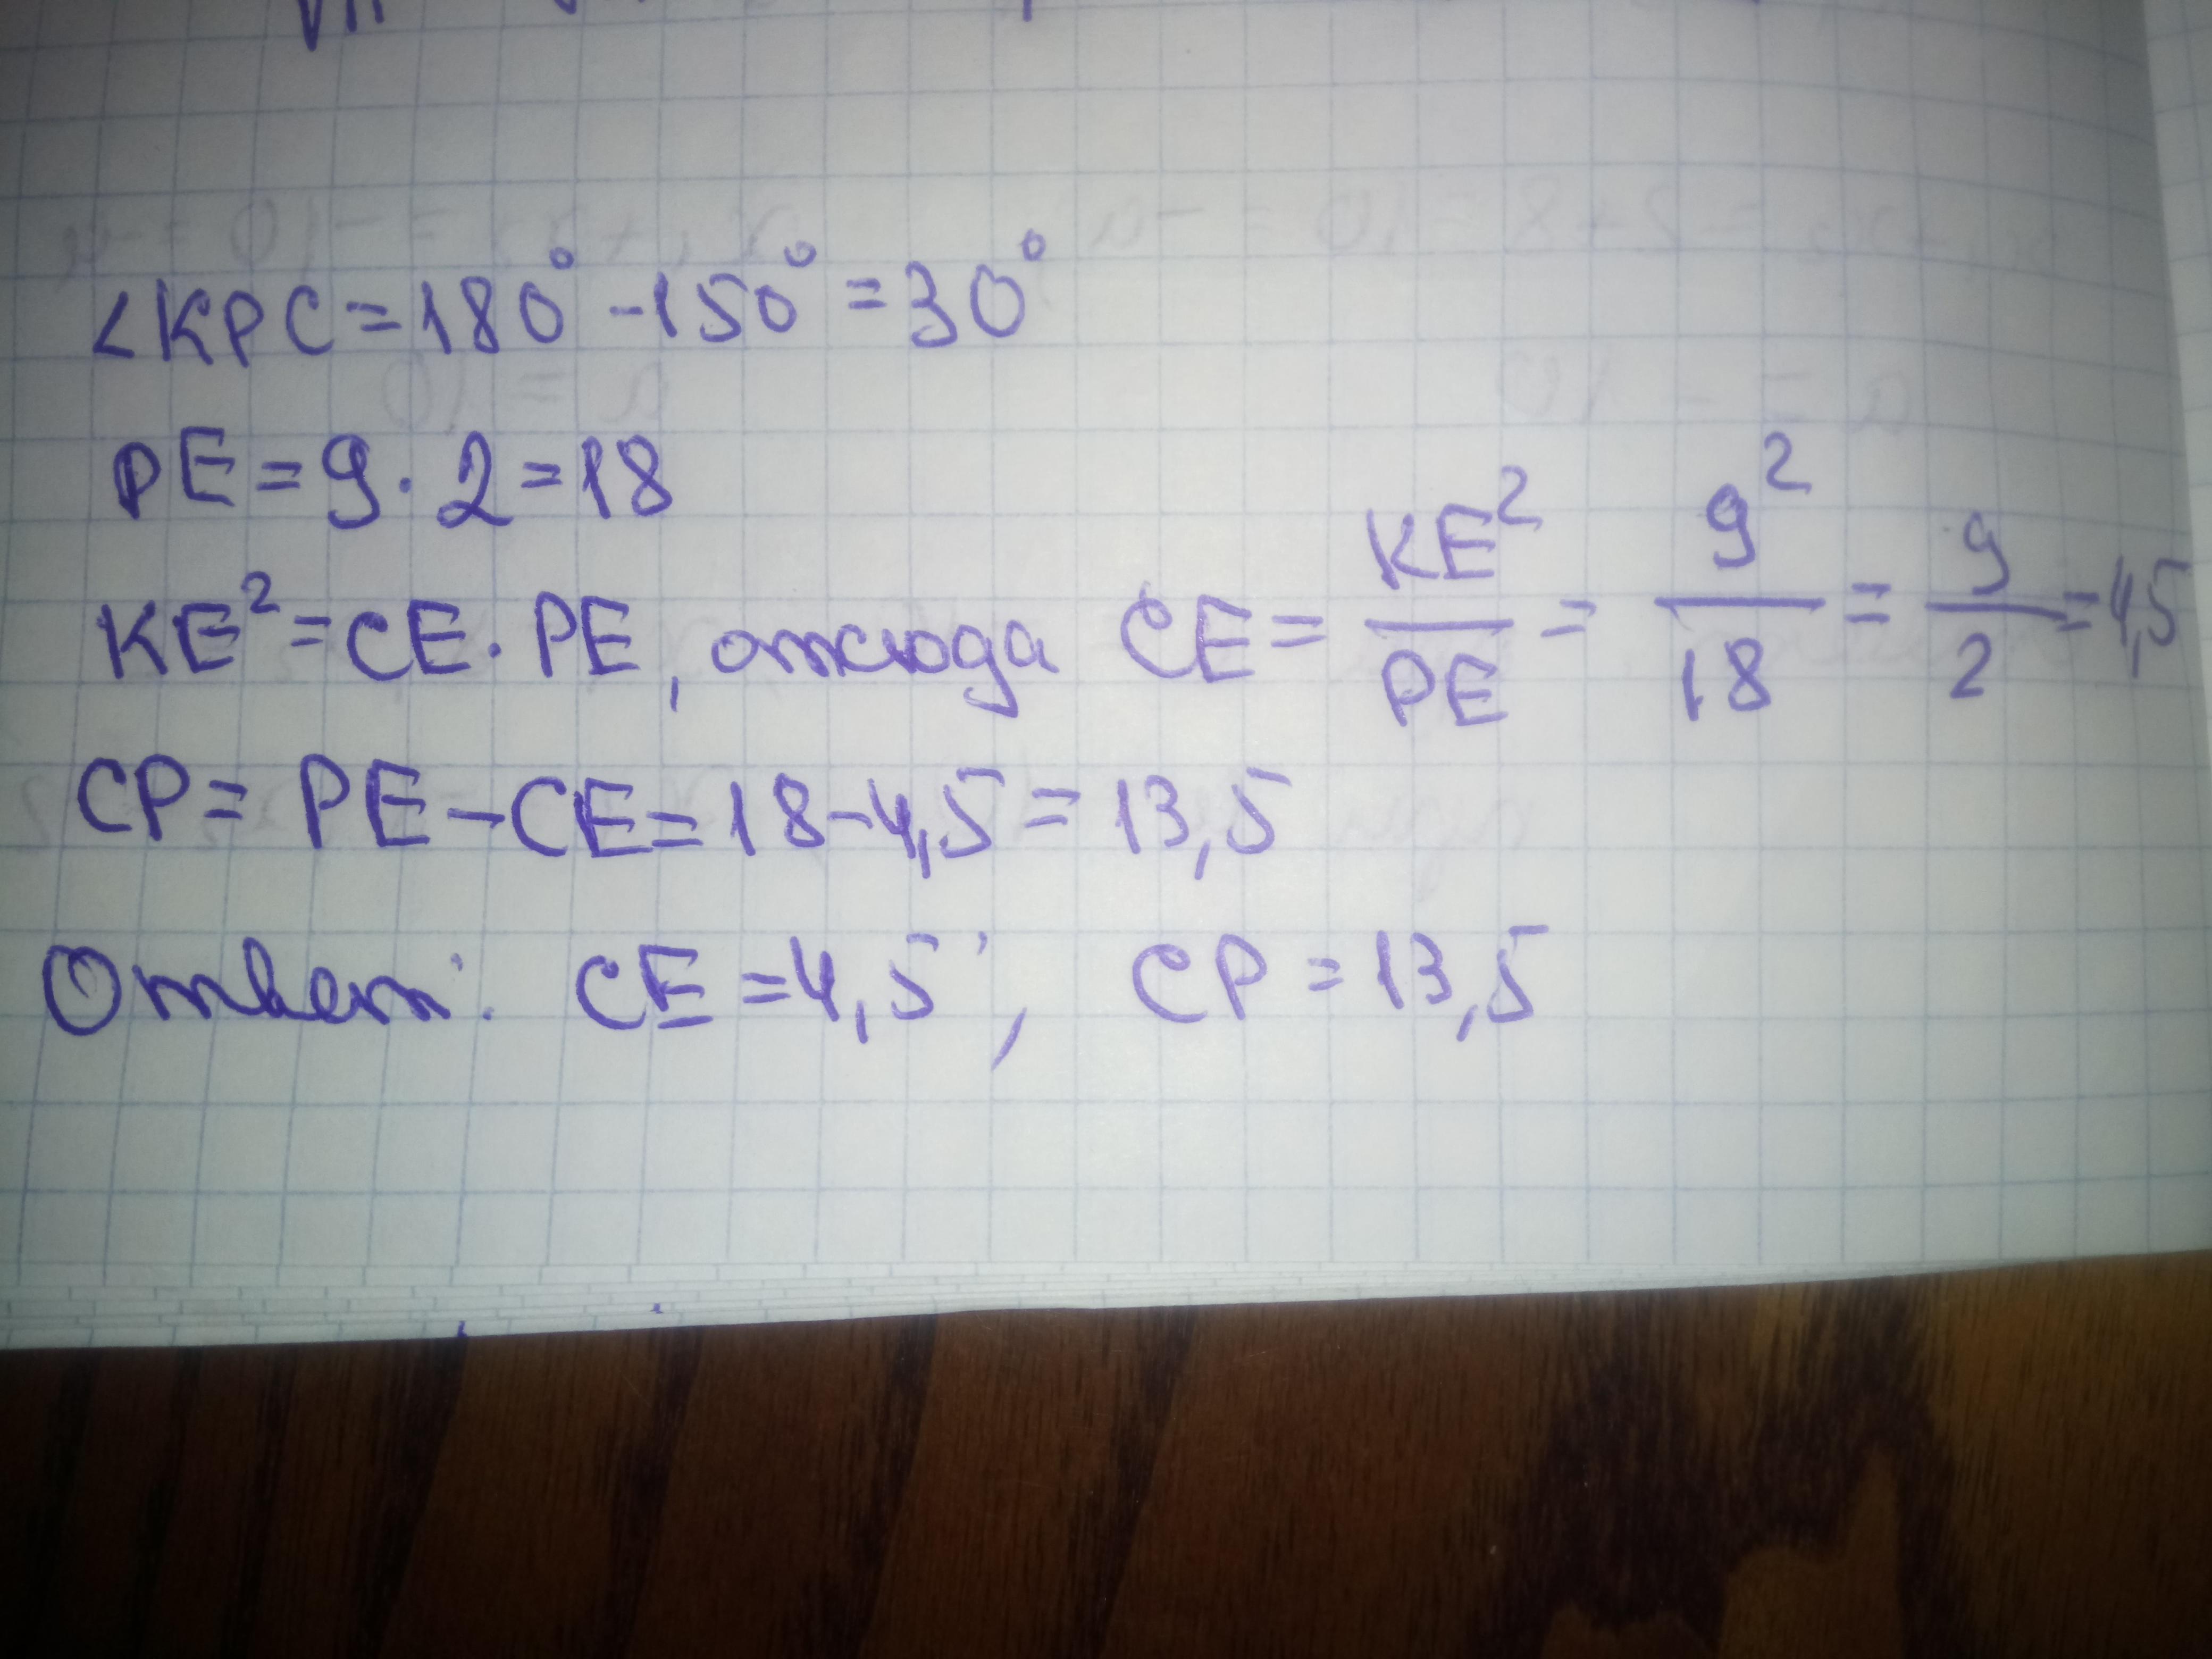 <KPC=180°-150°=30°
PE=9·2=18
KE²=CE·PE, откюда CE=KE²/PE=9²/18=9/2=4,5
CP=PE-CE=18-4,5=13,5
Ответ: CE=4,5; CP=13,5